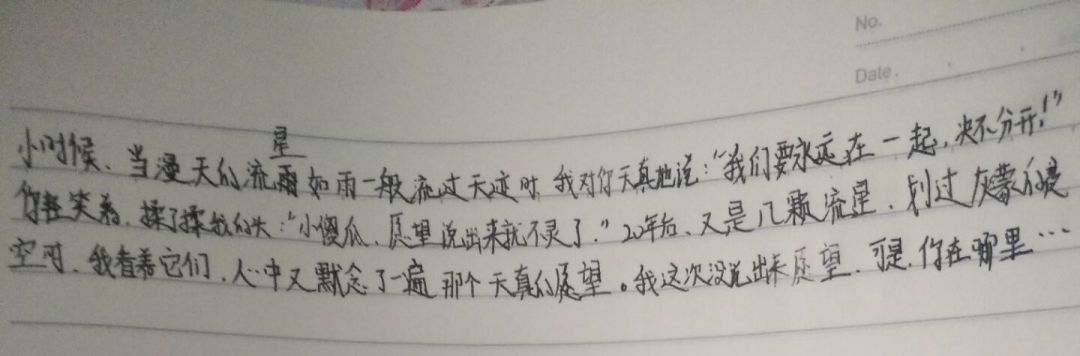 No.
Date.
小时候、当漫天的流星雨如雨一般流过天迹时,我对你天真地说:“我们要永远在一起,决不分开!”
你轻笑着,揉了揉我的头:“小傻瓜、愿望说出来就不灵了。”20年后、又是几颗流星、划过灰蒙的夜
空时,我看着它们,心中又默念了一遍那个天真的愿望。我这次没说出来愿望,可是,你在哪里…